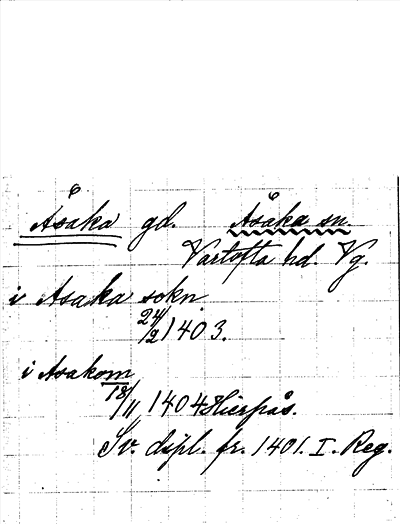 Åsaka gd. Åsaka sn.
Vartofta hd. Vg.
i Asaka sokn
24/2 1403.
i Asakom
18/11 1404 Hierpås.
Sv. dipl. fr. 1401. I. Reg.